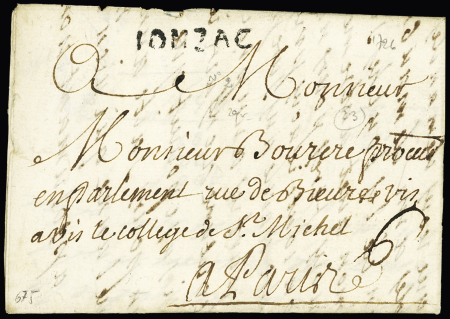 IONZAC
A Monsieur
Monsieur Bourere procur
en Parlement rue de Bieure vis
a vis le college de St. Michel
6
a Paris
675